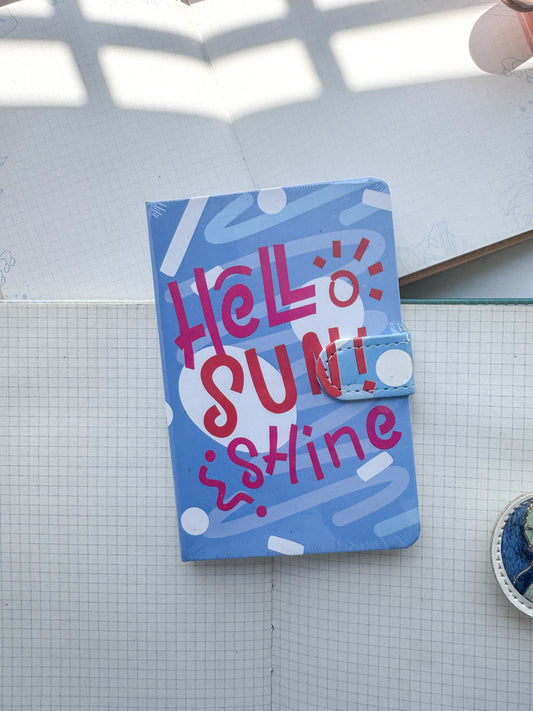 Hello
SUN!
Shine